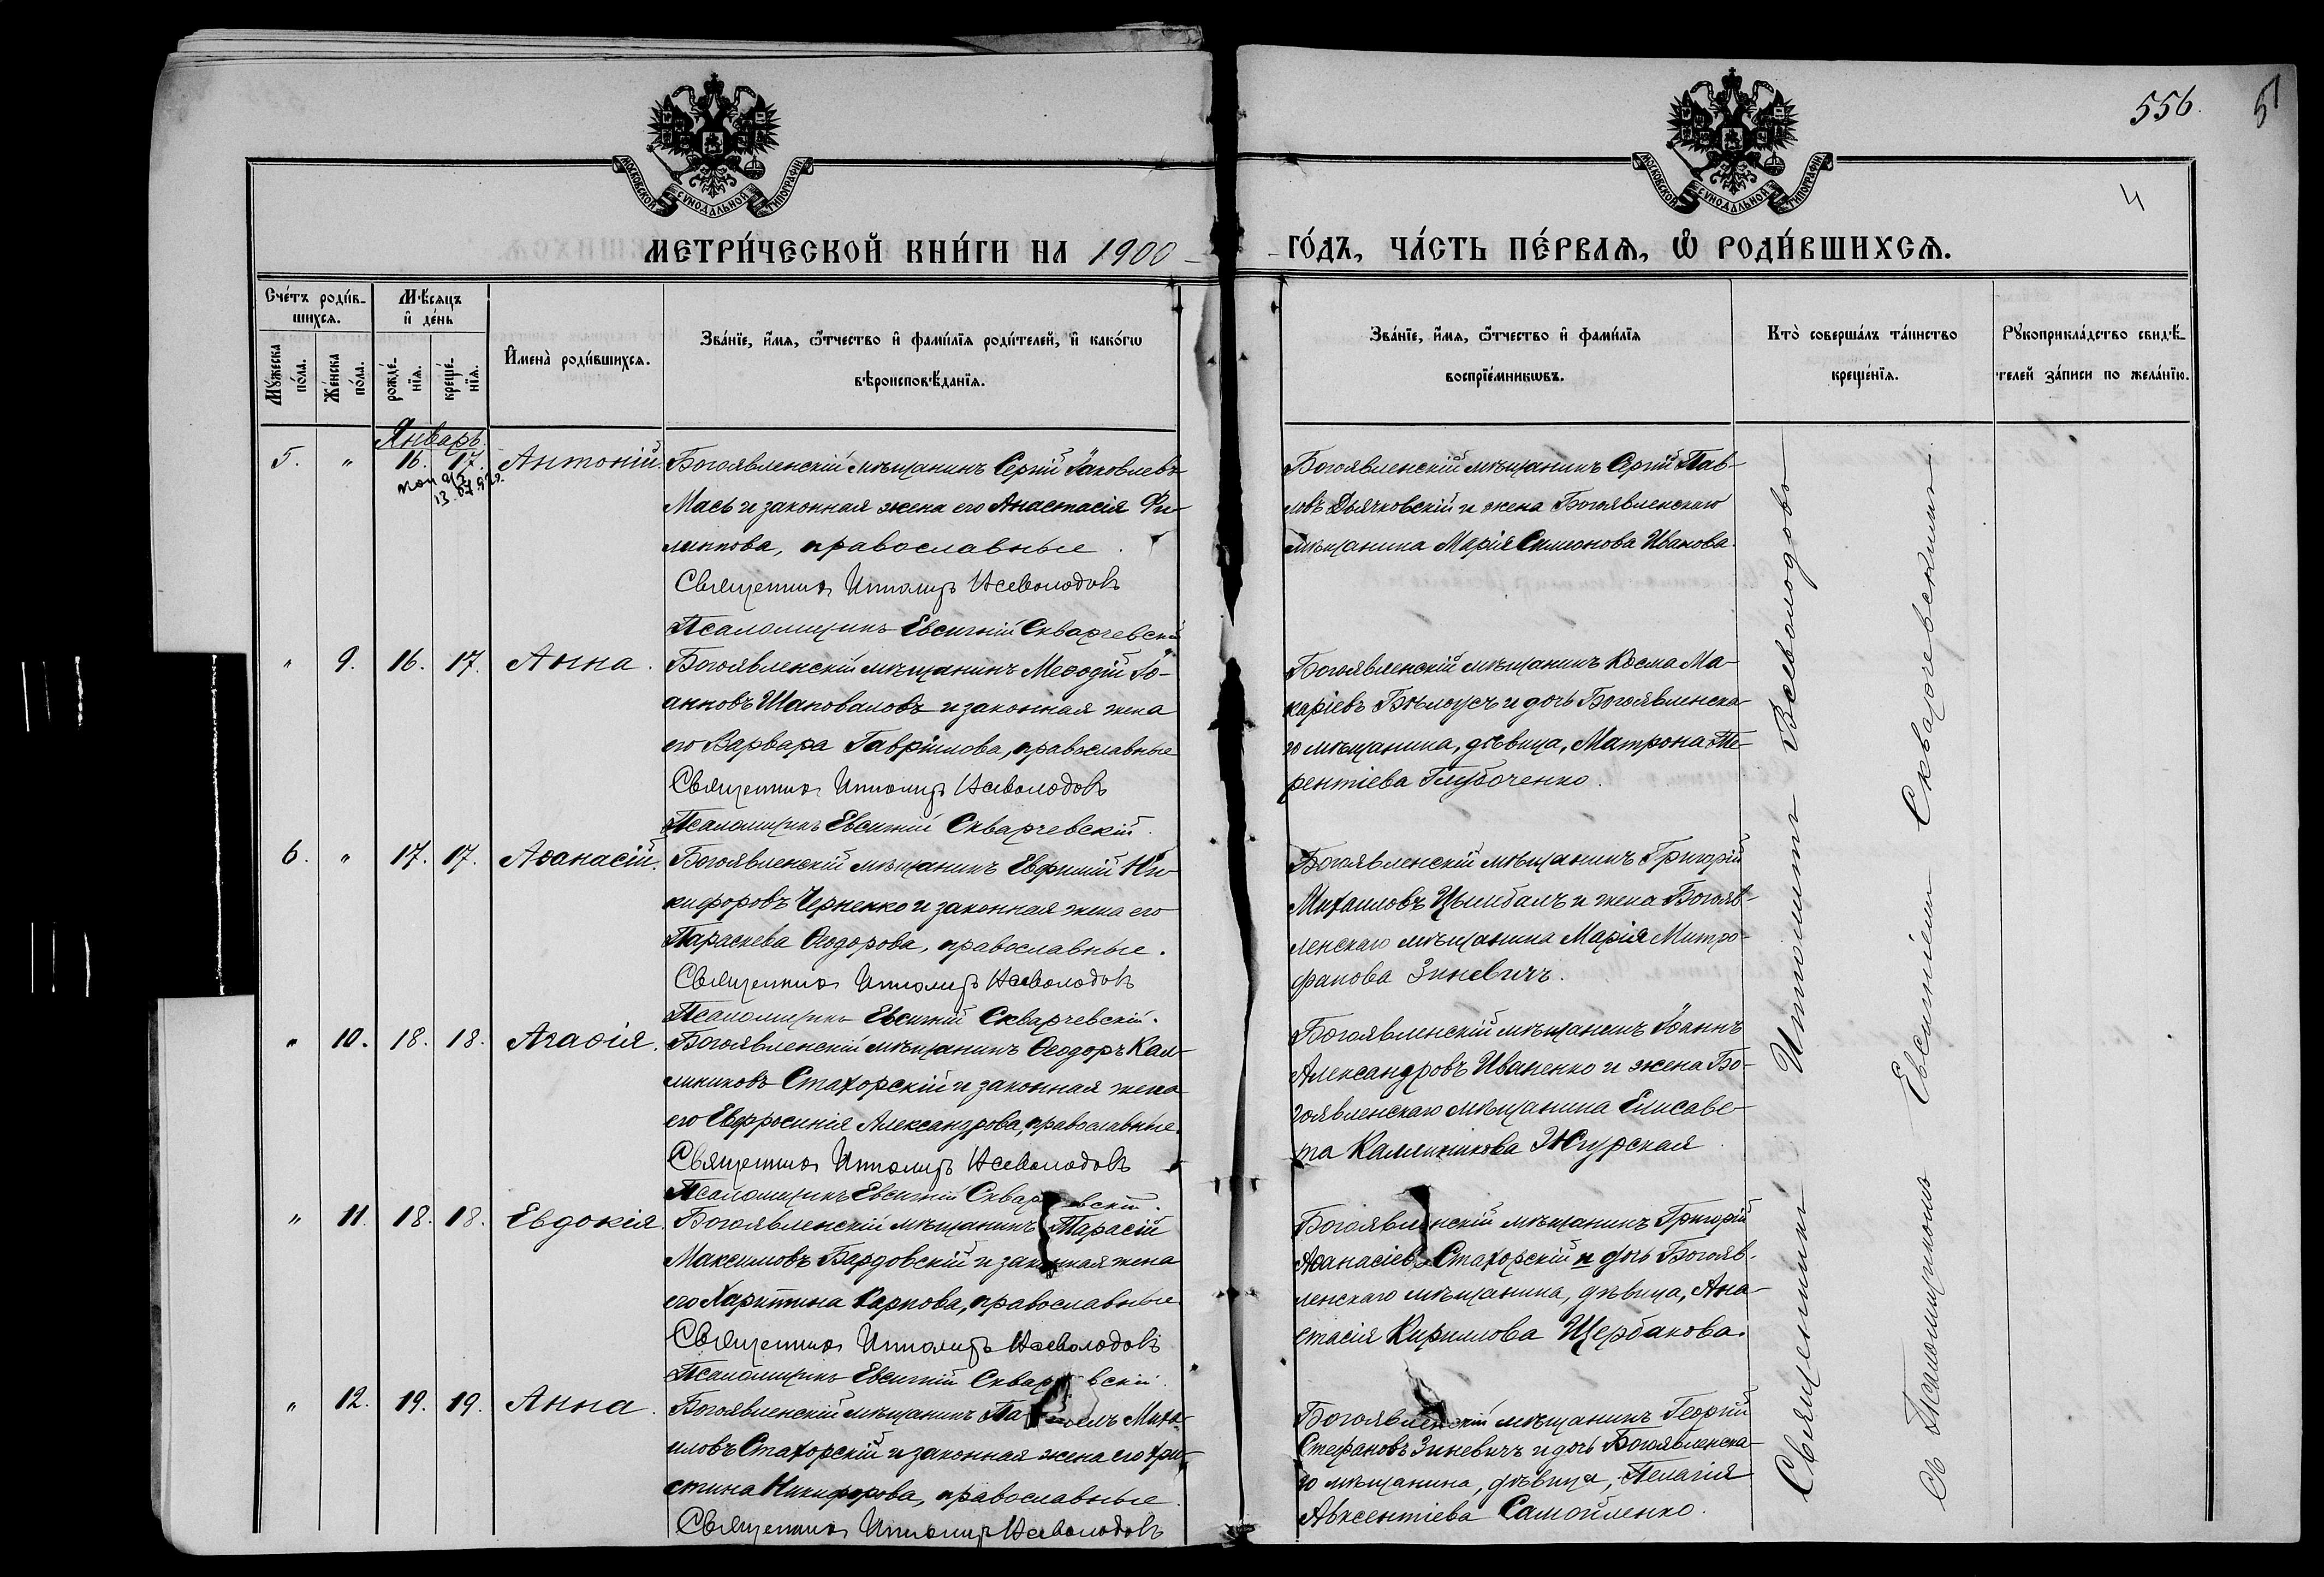 556. 5
МОСКОВСКОЙ СѴНОДАЛЬНОЙ ТИПОГРАФІИ
МОСКОВСКОЙ СѴНОДАЛЬНОЙ ТИПОГРАФІИ
4
МЕТРИ́ЧЕСКОЙ КНИ́ГИ НА 1900
ГО́ДЪ, ЧА́СТЬ ПЕ́РВАѦ, Ѡ҆ РОДИ́ВШИХСѦ.
Сче́тъ роди́в-
шихсѧ.
Мѣ́сѧцъ
и҆ де́нь
Мꙋ́жеска
по́ла.
Же́нска
по́ла.
рожде́-
нїѧ.
креще́-
нїѧ.
И҆мена̀ роди́вшихсѧ.
Зва́нїе, и҆́мѧ, ѻ҆́тчество и҆ фами́лїѧ роди́телей, и҆ како́гѡ
вѣроисповѣ́данїѧ.
Зва́нїе, и҆́мѧ, ѻ҆́тчество и҆ фами́лїѧ
воспрїе́мникѡвъ.
Кто̀ соверша́лъ та́инство
креще́нїѧ.
Рꙋкоприкла́дство свидѣ́-
телей за́писи по жела́нїю.
Январь
5. " 16. 17. Антоній.
Богоявленскій мѣщанинъ Сергій Іаковлевъ
Мась и законная жена его Анастасія Фи-
липпова, православные.
Священникъ Ипполитъ Всеволодовъ
Псаломщикъ Евсигній Скварчевскій
Богоявленскій мѣщанинъ Сергій Пав-
ловъ Дьячковскій и жена Богоявленскаго
мѣщанина Марія Симеонова Иванова.
" 9. 16. 17. Анна.
Богоявленскій мѣщанинъ Меѳодій Іо-
анновъ Шаповаловъ и законная жена
его Варвара Гавріилова, православные
Священникъ Ипполитъ Всеволодовъ
Псаломщикъ Евсигній Скварчевскій.
Богоявленскій мѣщанинъ Косма Ма-
каріевъ Бѣлоусъ и дочь Богоявленска-
го мѣщанина, дѣвица, Матрона Те-
рентіева Глубоченко.
6. " 17. 17. Аѳанасій.
Богоявленскій мѣщанинъ Евфимій Ни-
кифоровъ Черненко и законная жена его
Параскева Ѳеодорова, православные.
Священникъ Ипполитъ Всеволодовъ
Псаломщикъ Евсигній Скварчевскій.
Богоявленскій мѣщанинъ Григорій
Михаиловъ Цымбалъ и жена Богояв-
ленскаго мѣщанина Марія Митро-
фанова Зиневичъ.
" 10. 18. 18. Агаѳія.
Богоявленскій мѣщанинъ Ѳеодоръ Кал-
линиковъ Стахорскій и законная жена
его Евфросинія Александрова, православные.
Священникъ Ипполитъ Всеволодовъ
Псаломщикъ Евсигній Сквар вскій.
Богоявленскій мѣщанинъ Іоаннъ
Александровъ Иваненко и жена Бо-
гоявленскаго мѣщанина Елисаве-
та Каллиникова Жгурская.
" 11. 18. 18. Евдокія.
Богоявленскій мѣщанинъ Тарасій
Максимовъ Бардовскій и законная жена
его Харитина Карпова, православные
Священникъ Ипполитъ Всеволодовъ
Псаломщикъ Евсигній Сквар вскій.
Богоявленскій мѣщанинъ Григорій
Аѳанасіевъ Стахорскій и дочь Богояв-
ленскаго мѣщанина, дѣвица, Ана-
стасія Кириллова Щербакова.
" 12. 19. 19. Анна.
Богоявленскій мѣщанинъ Миха-
иловъ Стахорскій и законная жена его Хри-
стина Никифорова, православные.
Священникъ Ипполитъ Всеволодовъ
Богоявленскій мѣщанинъ Георгій
Стефановъ Зиневичъ и дочь Богоявленска-
го мѣщанина, дѣвица, Пелагія
Авксентіева Самойленко.
Священникъ Ипполитъ Всеволодовъ
Съ Псаломщикомъ Евсигніемъ Скварчевскимъ